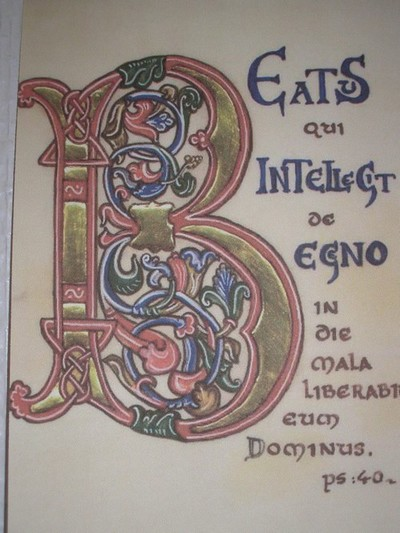 BEATUS
QUI
INTELLEGIT
DE
EGNO
IN
DIE
MALA
LIBERABI
EUM
DOMINUS.
ps:40-